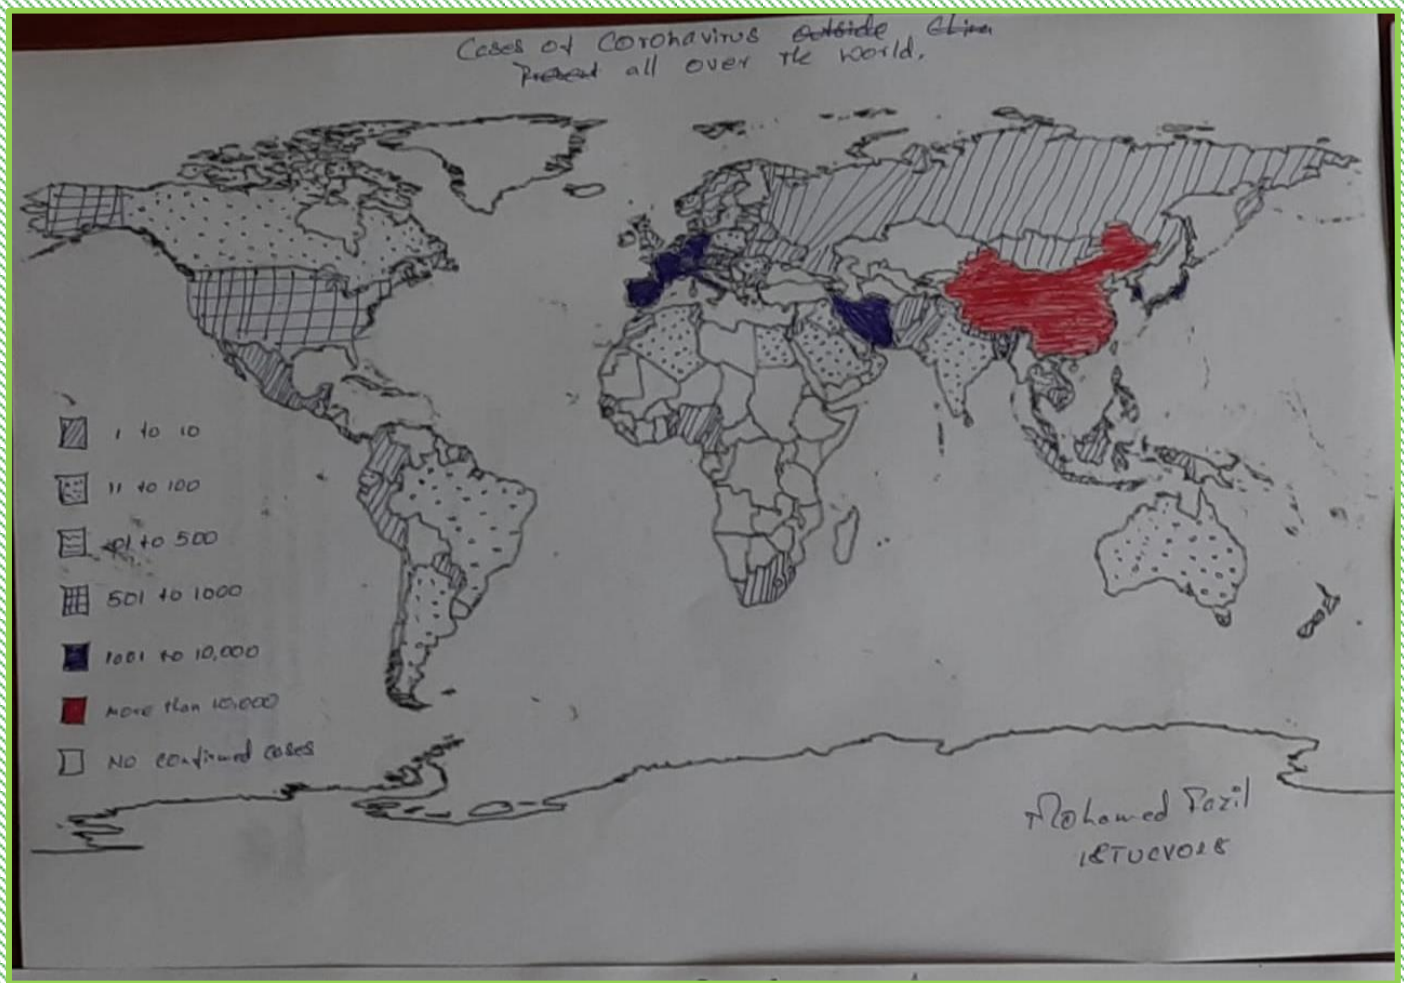 Cases of Coronavirus outside China
Present all over the World.
1 to 10
11 to 100
101 to 500
501 to 1000
1001 to 10,000
More than 10,000
No confirmed cases
Mohamed Fazil
18TUCV028